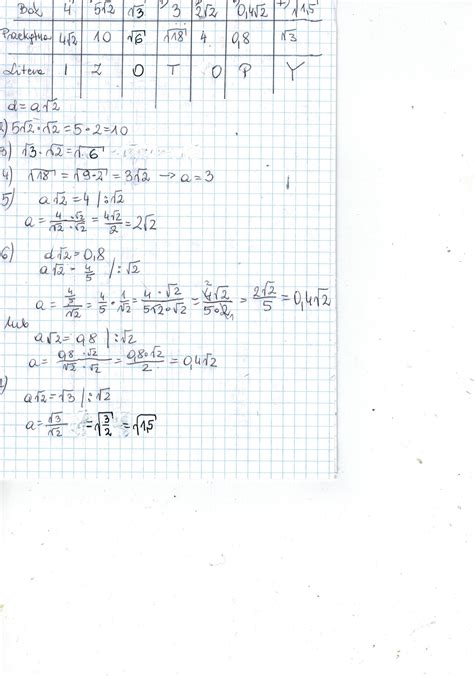 Bok 4 5√2 √3 3 2√2 0,4√2 √1,5
Przekątna 4√2 10 √6 √18 4 0,8 √3
Litera I Z O T O P Y
d=a√2
2) 5√2·√2=5·2=10
3) √3·√2=√6
4) √18=√9·2=3√2 → a=3
5) a√2=4 /:√2
a=4·√2/√2·√2=4√2/2=2√2
6) d√2=0,8
a√2=4/5 /:√2
a=4/5/√2=4/5·1/√2=4·√2/5√2·√2=4√2/5·2=2√2/5=0,4√2
lub
a√2=0,8 /:√2
a=0,8·√2/√2·√2=0,8·√2/2=0,4√2
a√2=√3 /:√2
a=√3/√2=√3/2=√1,5